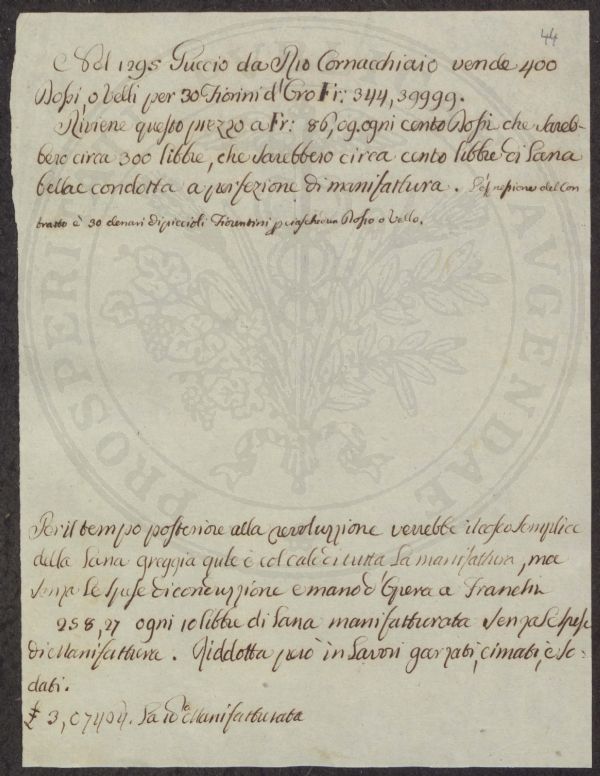 44
Nel 1295 Puccio da Rio Cornacchiaio vende 400
Bossi, o Velli per 30 Fiorini d'Oro Fr: 344,39999.
Riviene questo prezzo a Fr: 86,09. ogni cento Bossi che sareb-
bero circa 300 libbre, che sarebbero circa cento libbre di Lana
bella e condotta a perfezione di manifattura. L'espressione del Con
tratto è 30 denari di piccioli Fiorentini per ciascheduno Bossio o Vello.
Per il tempo posteriore alla revoluzzione verrebbe il costo semplice
della Lana greggia col calo di tutta la manifattura, ma
senza le spese di conduzzione e mano d'Opera a Franchi
258,27 ogni 10 libbre di Lana manifatturata senza le spese
di Manifattura. Riddotta però in Lavori garzati, cimati, e so-
dati.
£ 3,07404. La id.a Manifatturata
PROSPERI
AVGENDAE